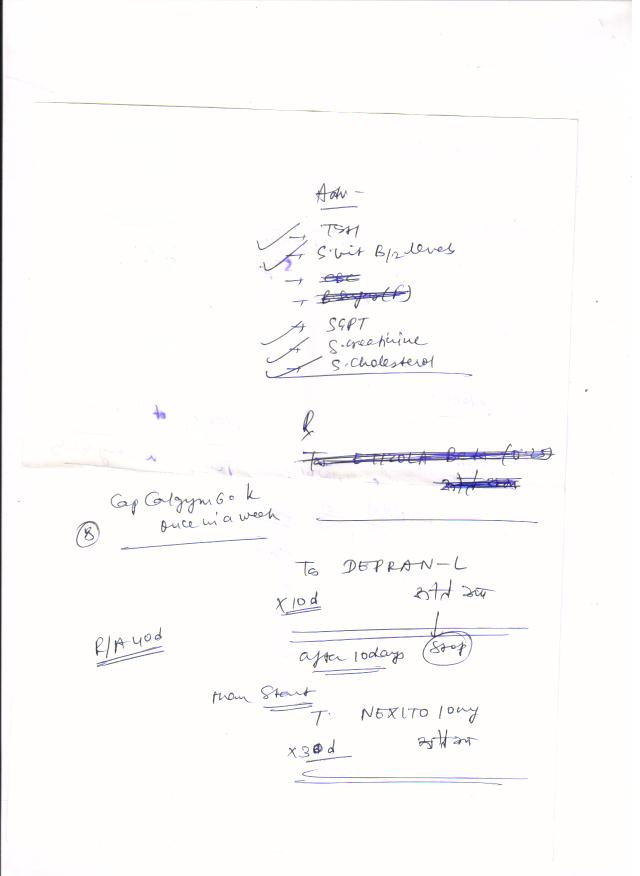 Adv -
→ TSH
→ S. vit B12 levels
→ CBC
→ SGPT
→ S. creatinine
→ S. Cholesterol
Rx
Cap Calgym 60 k
once in a week
8
Ta DEPRAN-L
X10d
R/A 40d
after 10days Stop
than Start
T. NEXITO 10mg
x30d